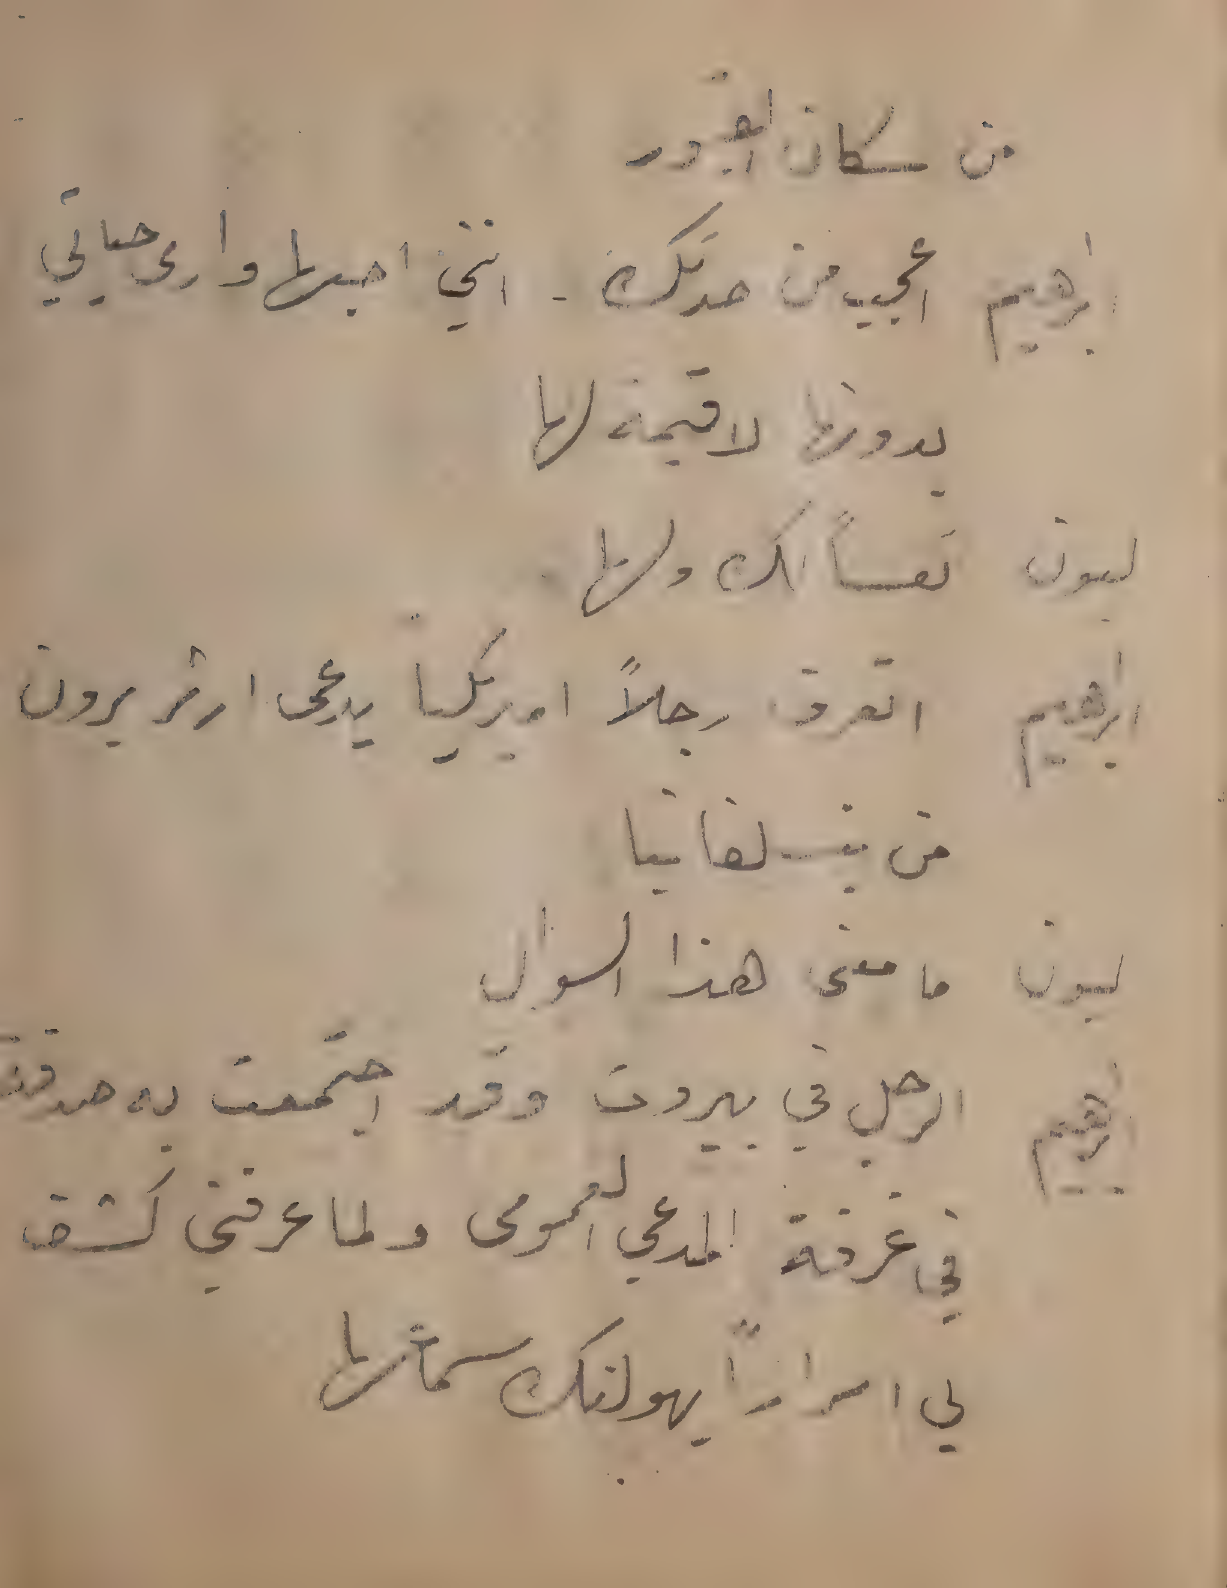 من سكان القبور
ابرهيم اعجب من حدتك - انني احبها وارى حياتي
بدونها لا قيمة لها
ليون تعساً لك ولها
ابرهيم اتعرف رجلاً اميركياً يدعى ارثر برون
من بنسلفانيا
ليون ما معنى هذا السوال
ابرهيم الرجل في بيروت وقد اجتمعت به صدفة
في غرفة المدعي العمومى ولما عرفني كشف
لي اسراراً يهولنك سماعها